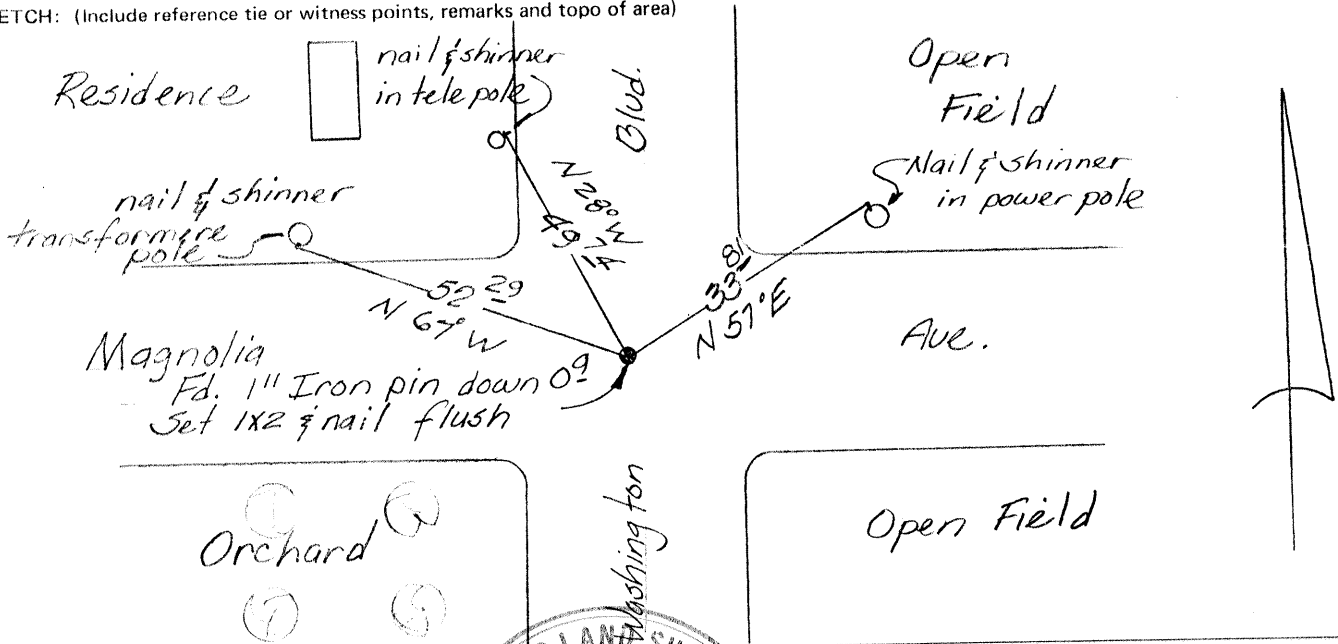 ETCH: (Include reference tie or witness points, remarks and topo of area)
Residence
nail & shinner
in tele pole
Blvd.
Open
Field
Nail & shinner
in power pole
nail & shinner
transformere
pole
N 28° W
49 74
52 29
N 67° W
33 81
N 57° E
Magnolia
Ave.
Fd. 1" Iron pin down 0 9
Set 1x2 & nail flush
Orchard
Washington
Open Field
LAND SU